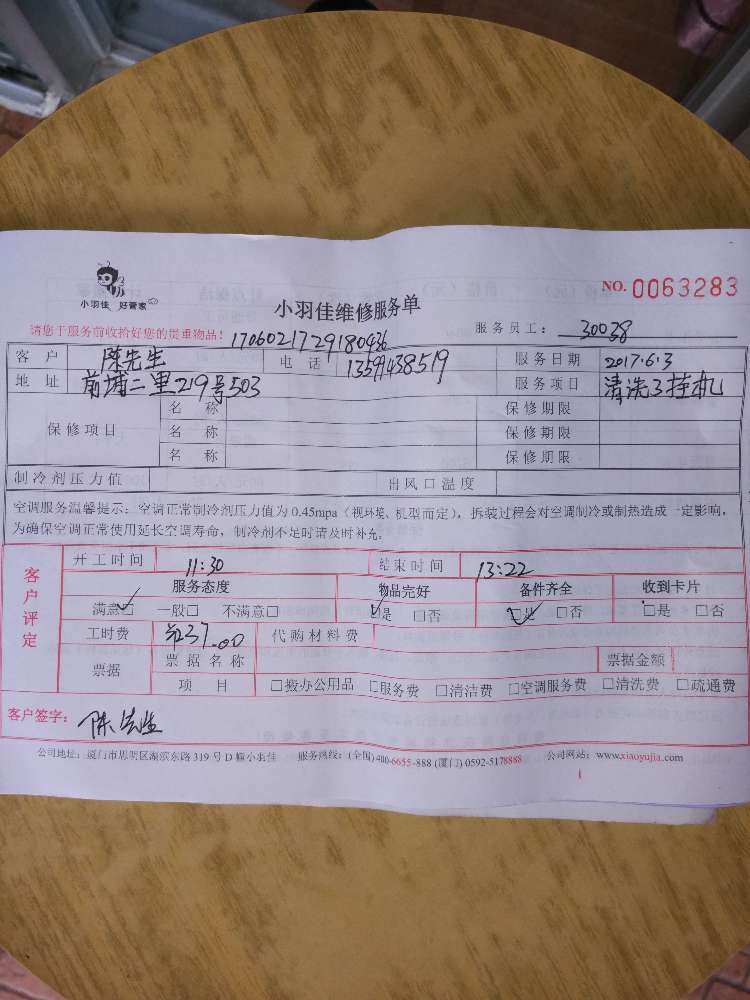 小羽佳 好管家
小羽佳维修服务单
NO. 0063283
请您于服务前收拾好您的贵重物品!
1706021729180436
服务员工: 30038
客户 陈先生 电话 13599438519 服务日期 2017.6.3
地址 前埔二里219号503 服务项目 清洗3挂机
保修项目 名称 保修期限
名称 保修期限
名称 保修期限
制冷剂压力值 出风口温度
空调服务温馨提示:空调正常制冷剂压力值为 0.45mpa(视环境、机型而定),拆装过程会对空调制冷或制热造成一定影响,
为确保空调正常使用延长空调寿命,制冷剂不足时请及时补充。
客户评定
开工时间 11:30 结束时间 13:22
服务态度 物品完好 备件齐全 收到卡片
满意☑ 一般□ 不满意□ ☑是 □否 ☑是 □否 □是 □否
工时费 37.00 代购材料费
票据 票据名称 票据金额
项目 □搬办公用品 □服务费 □清洁费 □空调服务费 □清洗费 □疏通费
客户签字: 陈先生
公司地址:厦门市思明区湖滨东路 319 号 D 幢小羽佳 服务热线:(全国)400-6655-888 (厦门) 0592-5178888 公司网站:www.xiaoyujia.com